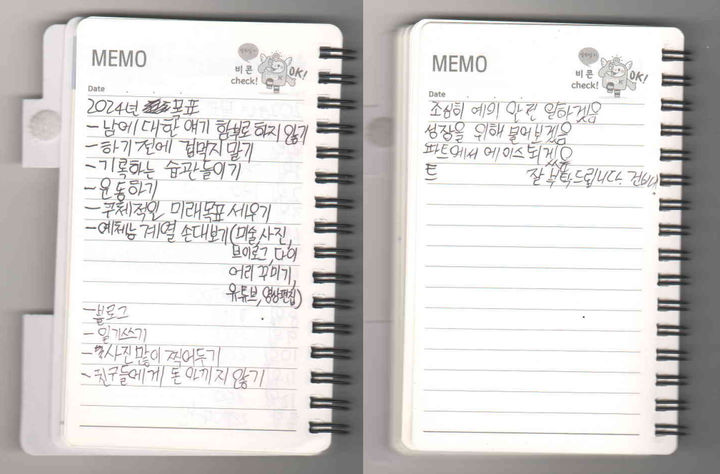 MEMO
비 콘
check!
OK!
Date
2024년 목표
- 남에 대한 얘기 함부로 하지 않기
- 하기 전에 겁먹지 말기
- 기록하는 습관 들이기
- 운동하기
- 구체적인 미래목표 세우기
- 예체능 계열 손대보기(미술, 사진,
브이로그, 다이
어리 꾸미기,
유튜브, 영상편집)
- 블로그
- 일기쓰기
- 사진 많이 찍어두기
- 친구들에게 돈 아끼지 않기
MEMO
비 콘
check!
OK!
Date
조심히 예의 일하겠음
성장을 위해 물어보겠음
파트에서 에이스 되겠음
트
잘 부탁드립니다.